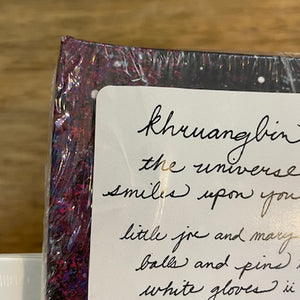 khruangbin
the universe
smiles upon you
little joe and mary
balls and pins
white gloves ii